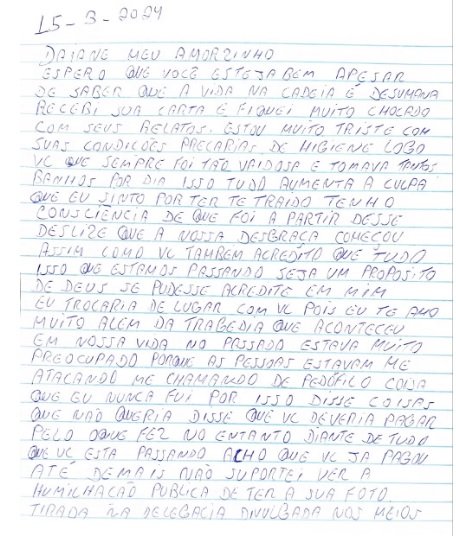 15-3-2024
DAIANE MEU AMORZINHO
ESPERO QUE VOCÊ ESTEJA BEM APESAR
DE SABER QUE A VIDA NA CADEIA É DESUMANA
RECEBI SUA CARTA E FIQUEI MUITO CHOCADO
COM SEUS RELATOS. ESTOU MUITO TRISTE COM
SUAS CONDICÕES PRECARIAS DE HIGIENE LOGO
VC QUE SEMPRE FOI TÃO VAIDOSA E TOMAVA TANTOS
BANHOS POR DIA ISSO TUDO AUMENTA A CULPA
QUE EU SINTO POR TER TE TRAIDO TENHO
CONSCIÊNCIA DE QUE FOI A PARTIR DESSE
DESLIZE QUE A NOSSA DESGRAÇA COMEÇOU
ASSIM COMO VC TAMBEM ACREDITO QUE TUDO
ISSO QUE ESTAMOS PASSANDO SEJA UM PROPOSITO
DE DEUS SE PUDESSE ACREDITE EM MIM
EU TROCARIA DE LUGAR COM VC POIS EU TE AMO
MUITO ALEM DA TRAGEDIA QUE ACONTECEU
EM NOSSA VIDA NO PASSADO ESTAVA MUITO
PREOCUPADO PORQUE AS PESSOAS ESTAVAM ME
ATACANDO ME CHAMANDO DE PEDÓFILO COISA
QUE EU NUNCA FUI POR ISSO DISSE COISAS
QUE NÃO QUERIA DISSE QUE VC DEVERIA PAGAR
PELO OQUE FEZ NO ENTANTO DIANTE DE TUDO
QUE VC ESTA PASSANDO ACHO QUE VC JA PAGOU
ATÉ DEMAIS NÃO SUPORTEI VER A
HUMILHACÃO PUBLICA DE TER A SUA FOTO
TIRADA NA DELEGACIA DIVULGADA NOS MEIOS